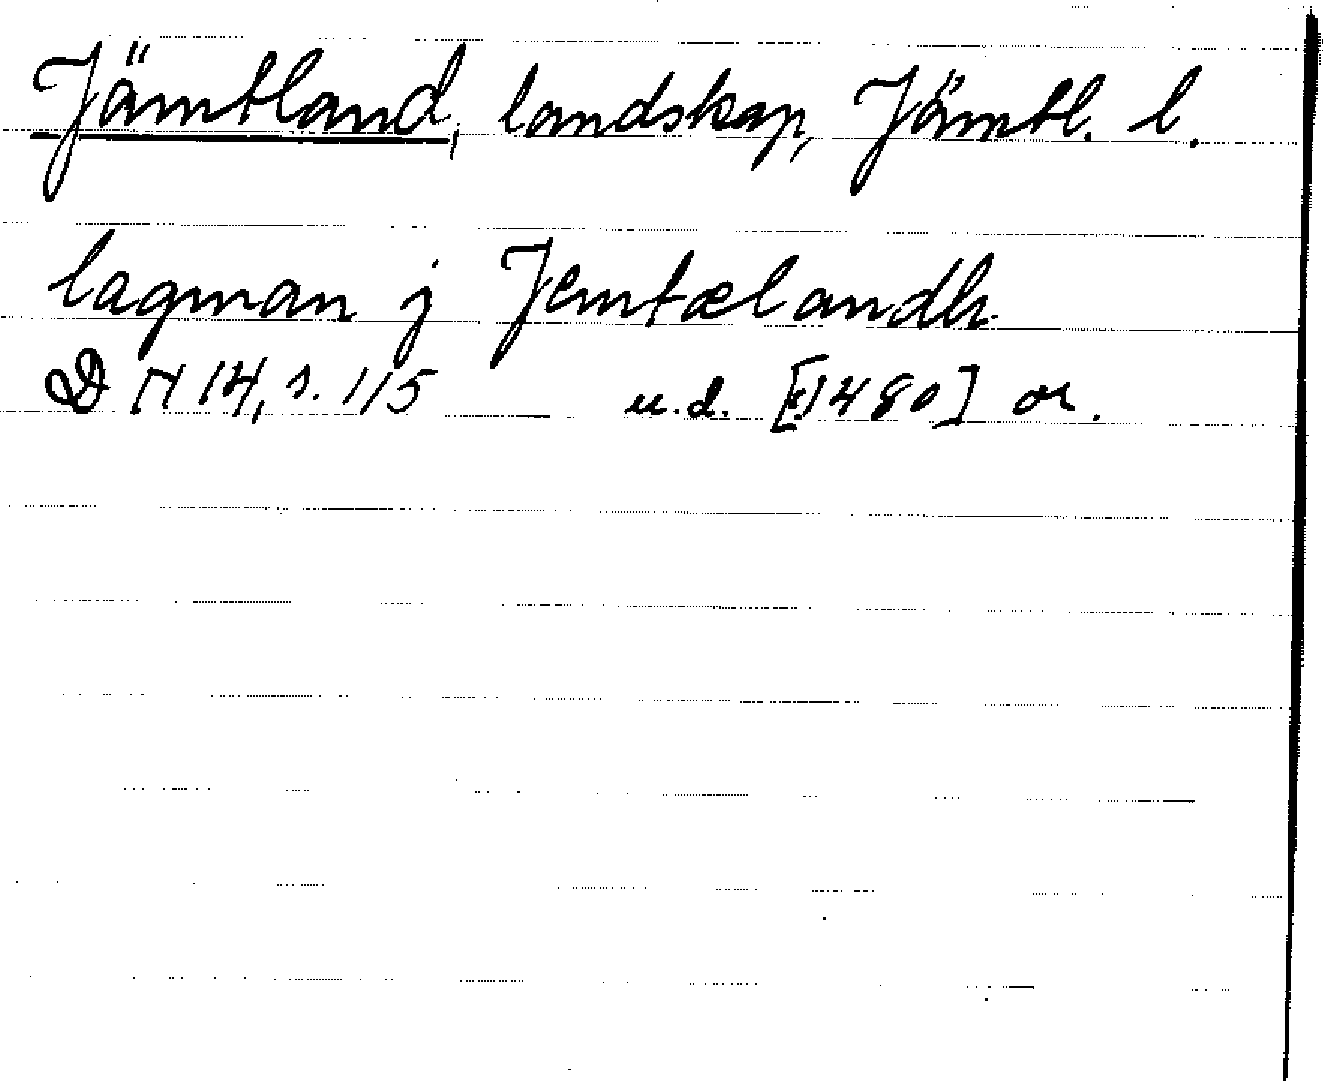 Jämtland, landskap, Jämtl. l.
lagman j Jemtælandh
DN 14, s. 115 u.d. [1480] or.